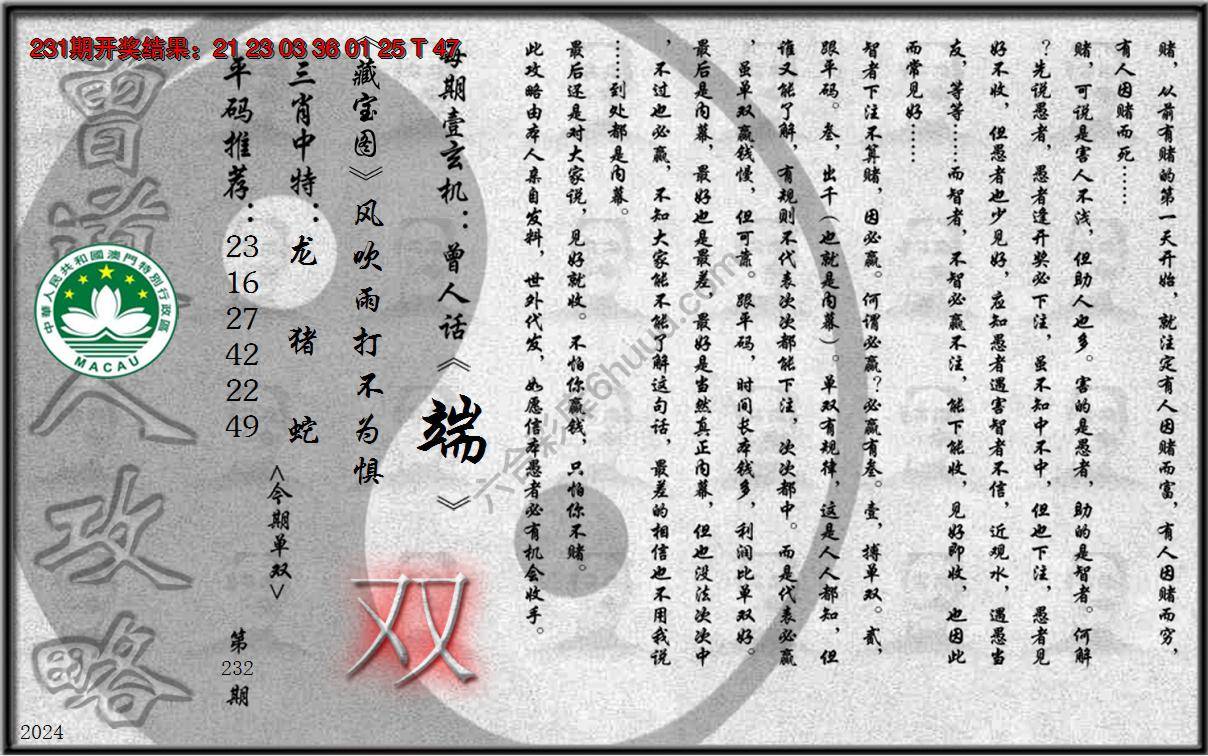 231期开奖结果：21 23 03 36 01 25 T 47
赌，从前有赌的第一天开始，就注定有人因赌而富，有人因赌而穷，
有人因赌而死……
赌，可说是害人不浅，但助人也多。害的是愚者，助的是智者。何解
？先说愚者，愚者逢开奖必下注，虽不知中不中，但也下注，愚者见
好不收，但愚者也少见好，应知愚者遇害智者不信，近观水，遇愚当
友，等等……而智者，不智必赢不注，能下能收，见好即收，也因此
而常见好……
智者下注不算赌，因必赢。何谓必赢？必赢有叁。壹，搏单双。贰，
跟平码。叁，出千（也就是内幕）。单双有规律，这是人人都知，但
谁又能了解，有规则不代表次次都能下注，次次都中。而是代表必赢
，虽单双赢钱慢，但可靠。跟平码，时间长本钱多，利润比单双好。
最后是内幕，最好也是最差，最好是当然真正内幕，但也没法次次中
，不过也必赢，不知大家能不能了解这句话，最差的相信也不用我说
……到处都是内幕。
最后还是对大家说，见好就收。不怕你赢钱，只怕你不赌。
此攻略由本人亲自发料，世外代发，如愿信本愚者必有机会收手。
每期壹玄机：曾人话《端》
《藏宝图》风吹雨打不为惧
双
三肖中特：龙 猪 蛇
<今期单双>
平码推荐：
23
16
27
42
22
49
第
232
期
曾道人攻略
中華人民共和國澳門特別行政區
MACAU
六合彩票6huuu.com
2024